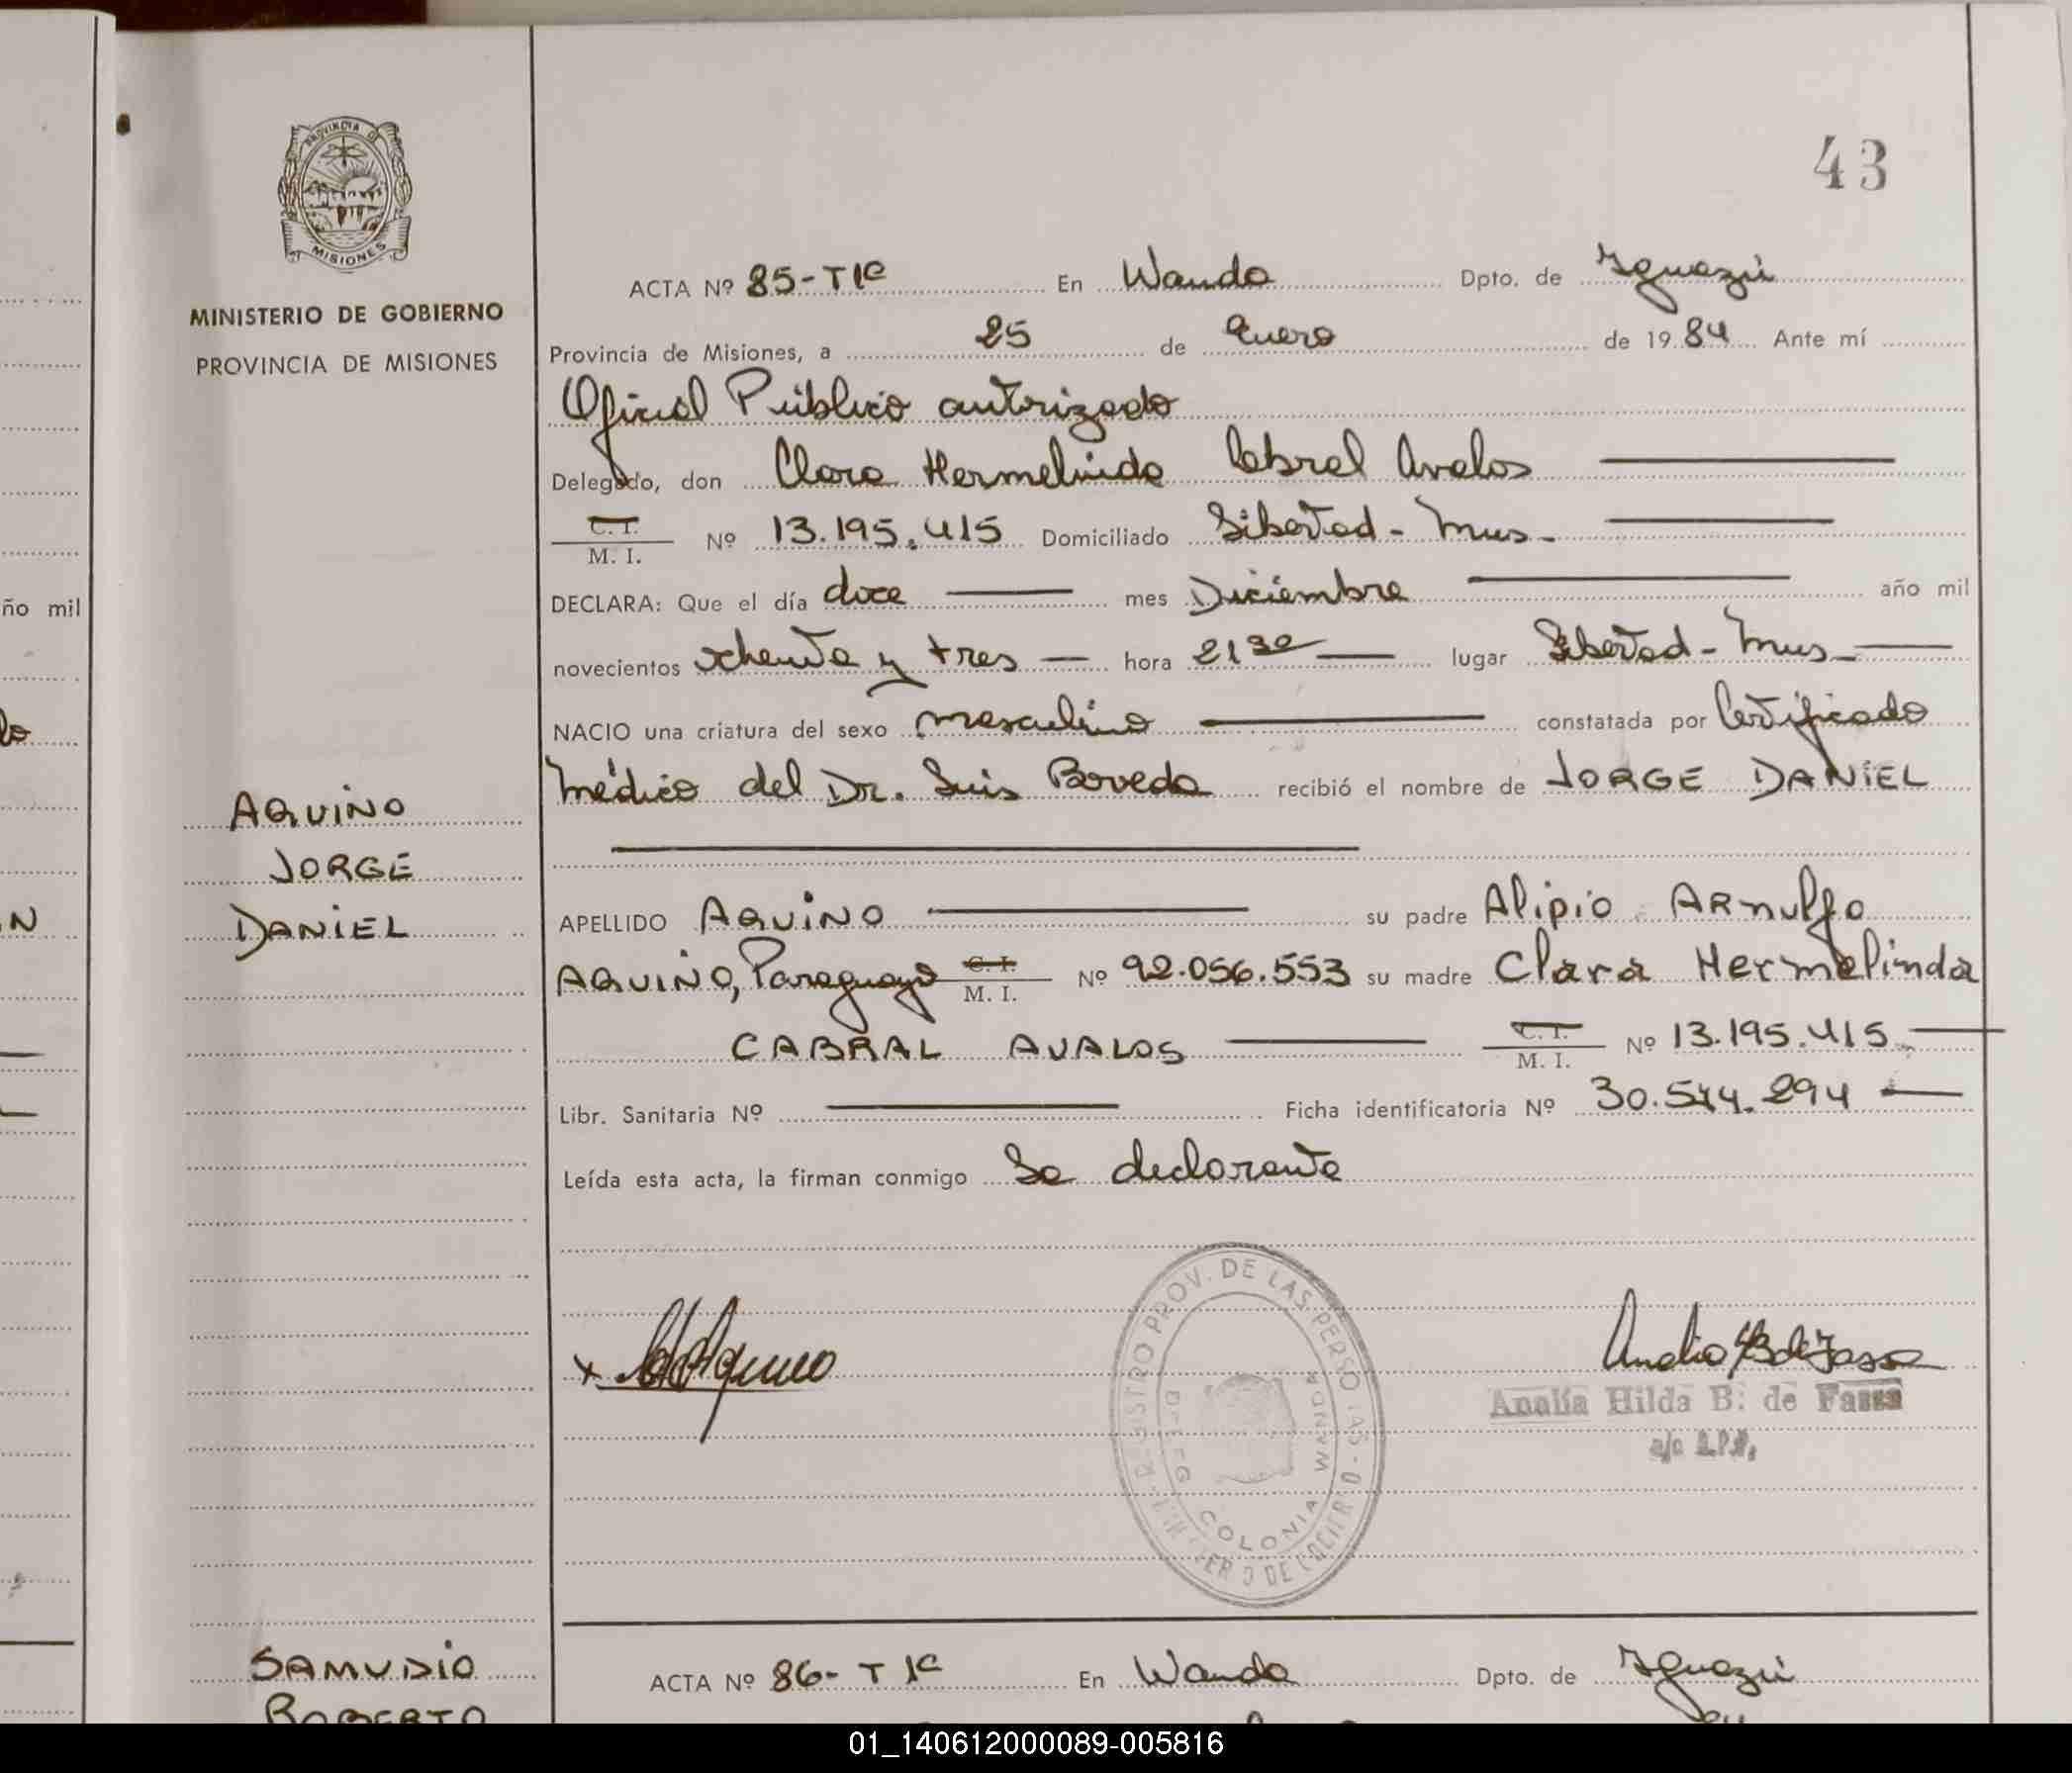 43
PROVINCIA DE
MISIONES
MINISTERIO DE GOBIERNO
PROVINCIA DE MISIONES
ACTA Nº 85-T1º En Wanda Dpto. de Iguazú
Provincia de Misiones, a 25 de Enero de 1984 Ante mí
Oficial Público autorizado
Delegado, don Clara Hermelinda Cabral Avalos
C. I. M. I. Nº 13.195.415 Domiciliado Libertad - Mnes.
DECLARA: Que el día doce mes Diciembre año mil
novecientos ochenta y tres hora 21 30 lugar Libertad - Mnes
NACIO una criatura del sexo masculino constatada por Certificado
Médico del Dr. Luis Poveda recibió el nombre de JORGE DANIEL
AQUINO
JORGE
DANIEL
APELLIDO AQUINO su padre Alipio ARNULFO
AQUINO, Paraguayo C. I. M. I. Nº 92.056.553 su madre Clara Hermelinda
CABRAL AVALOS C. I. M. I. Nº 13.195.415
Libr. Sanitaria Nº Ficha identificatoria Nº 30.544.294
Leída esta acta, la firman conmigo La declarante
PROV. DE LAS PERSONAS
COLONIA WANDA
Analía Hilda B. de Fassa
a/c
SAMUDIO
ROBERTO
ACTA Nº 86-T1º En Wanda Dpto. de Iguazú
ño mil
01_140612000089-005816